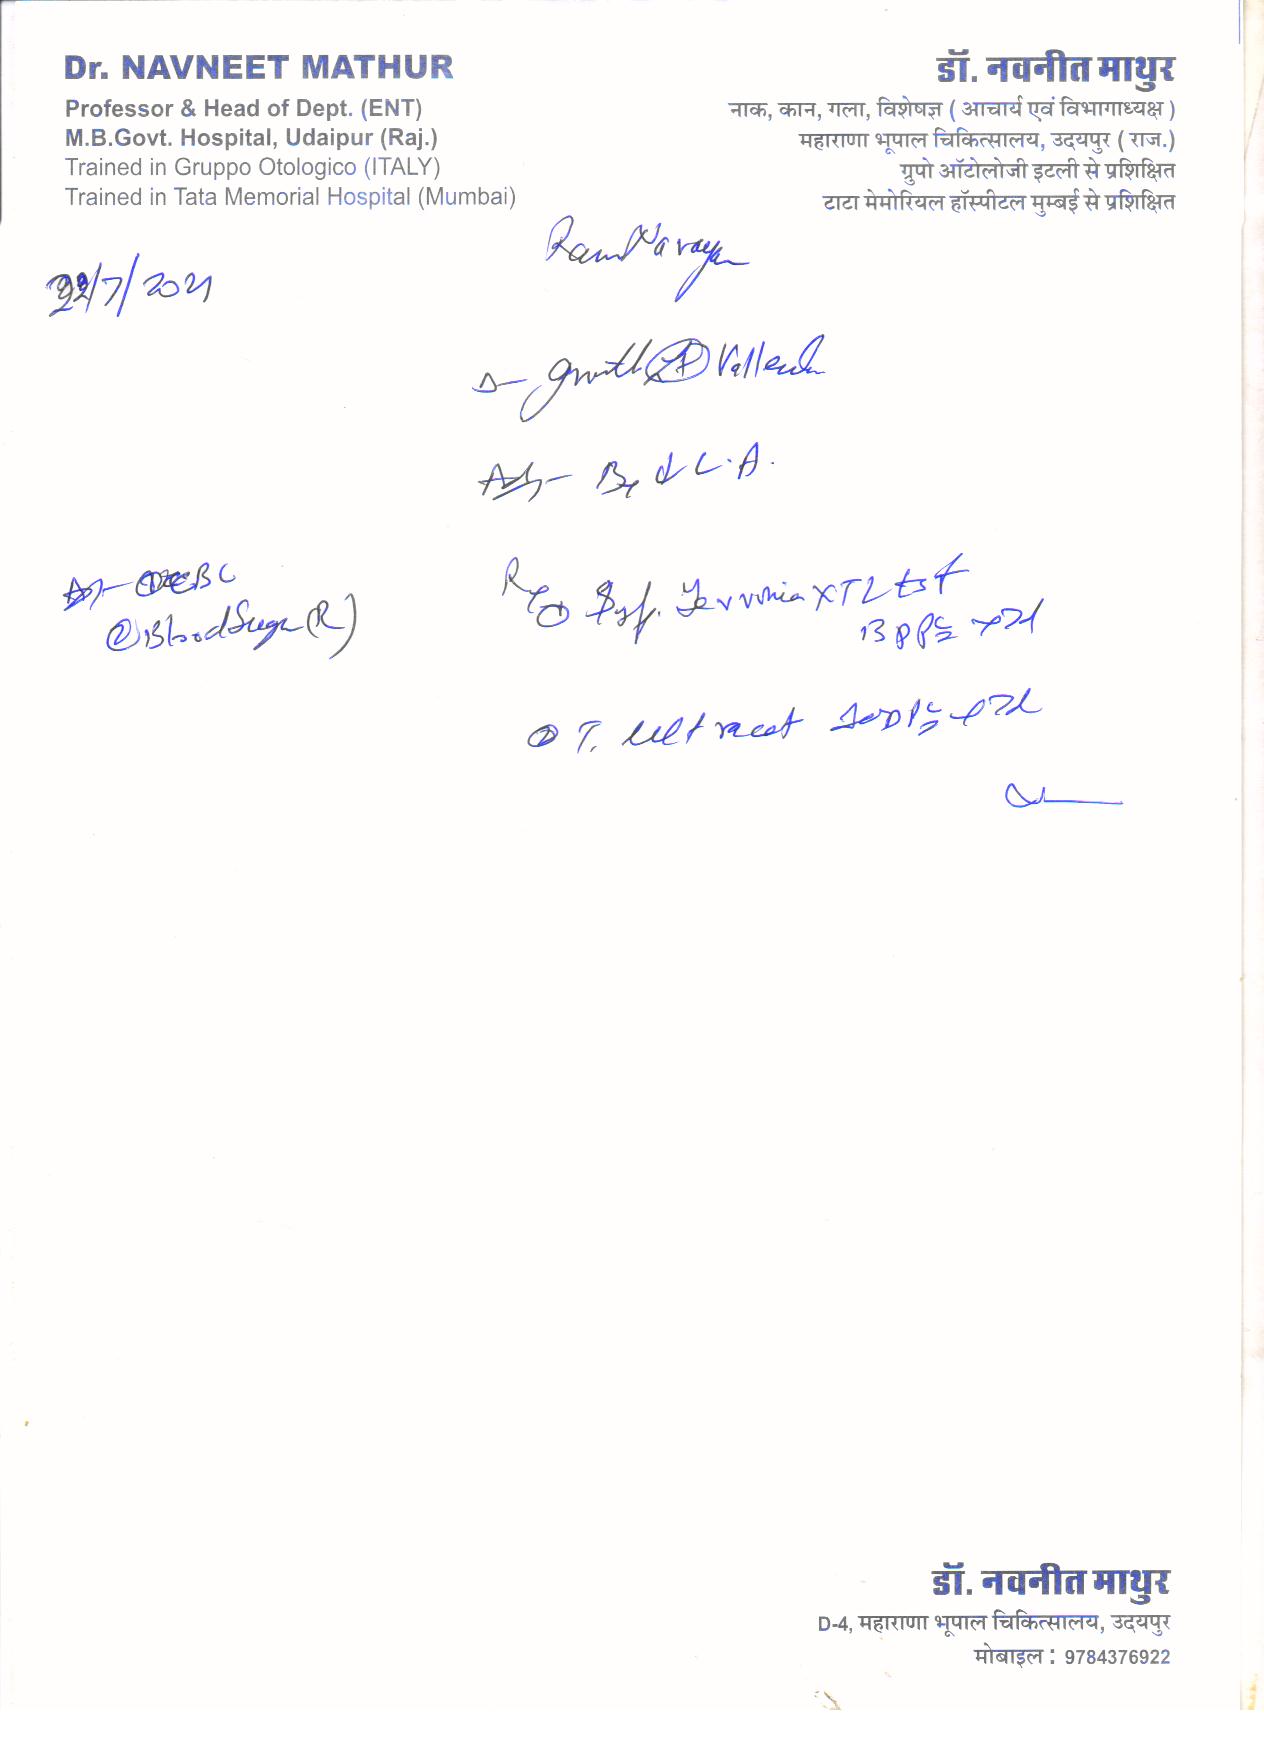 Dr. NAVNEET MATHUR
Professor & Head of Dept. (ENT)
M.B.Govt. Hospital, Udaipur (Raj.)
Trained in Gruppo Otologico (ITALY)
Trained in Tata Memorial Hospital (Mumbai)
डॉ. नवनीत माथुर
नाक, कान, गला, विशेषज्ञ ( आचार्य एवं विभागाध्यक्ष )
महाराणा भूपाल चिकित्सालय, उदयपुर ( राज.)
ग्रुपो ऑटोलोजी इटली से प्रशिक्षित
टाटा मेमोरियल हॉस्पीटल मुम्बई से प्रशिक्षित
Ram Narayan
/7/2021
Δ- growth Vallecula
Adv- Bx L.A.
Adv- CBC
② Blood Sugar (R)
Rx ① Syp.
② T. Ultracet
डॉ. नवनीत माथुर
D-4, महाराणा भूपाल चिकित्सालय, उदयपुर
मोबाइल : 9784376922